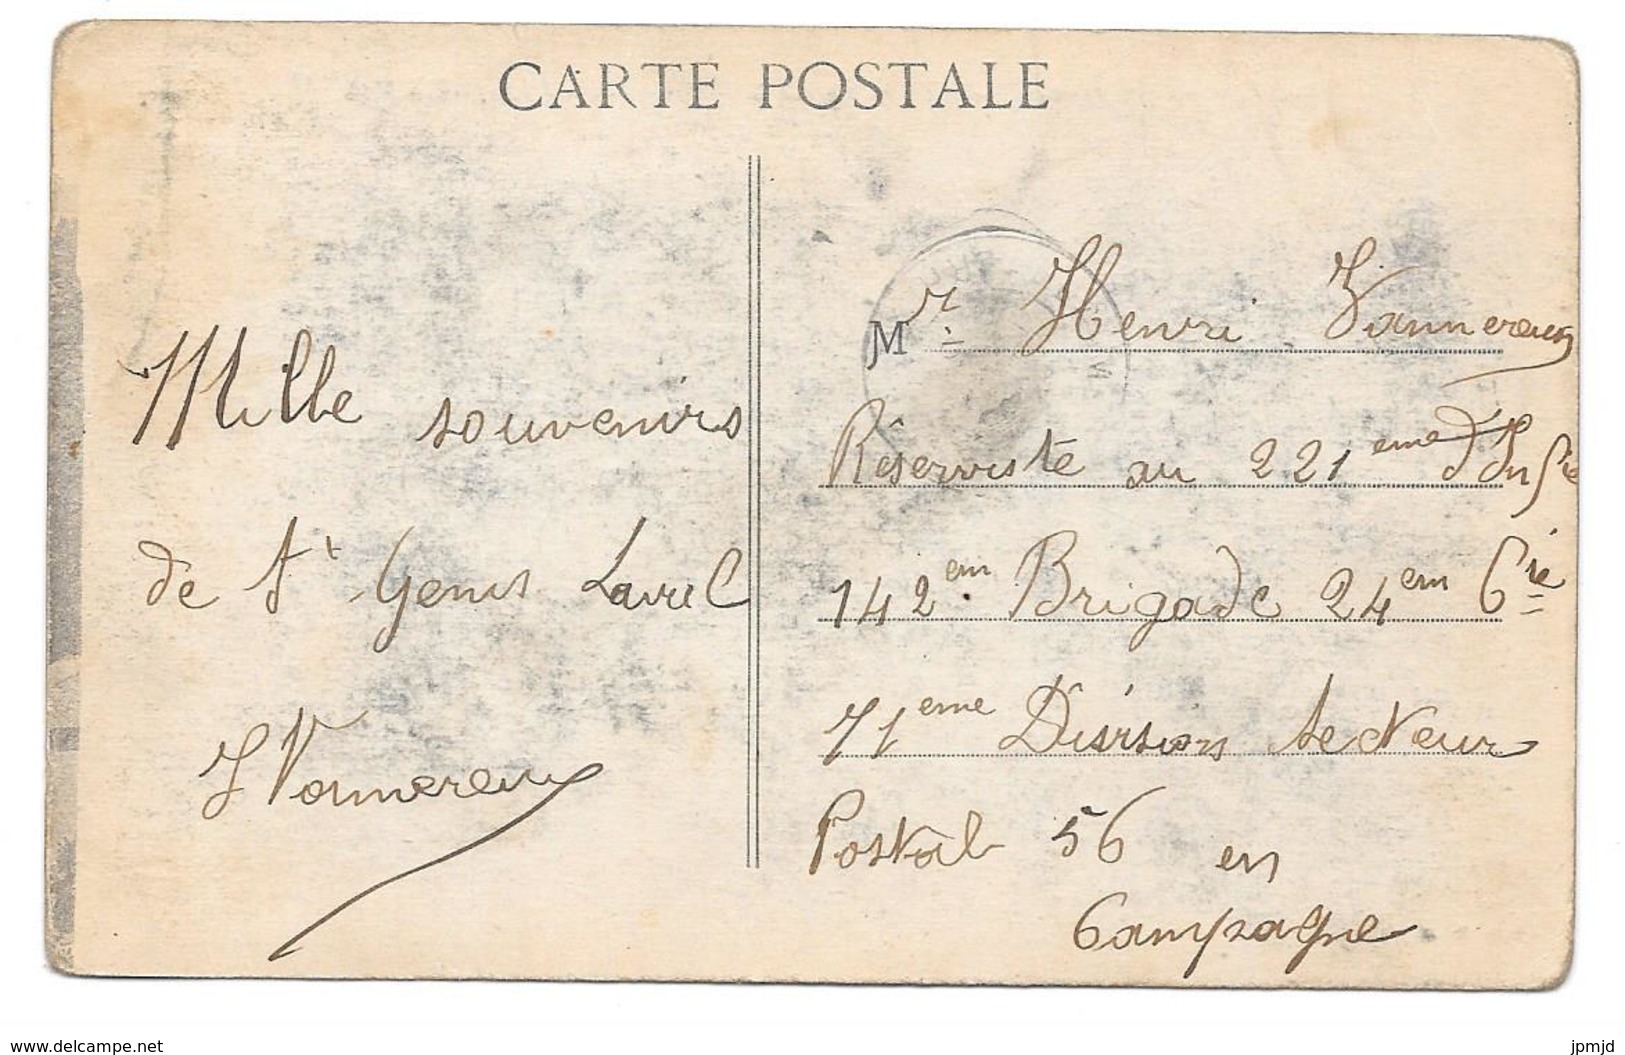 CARTE POSTALE
Mille souvenirs
de St Genis Laval
J Vannereux
Mr Henri Vannereux
Réserviste au 221eme d'Infie
142em Brigade 24em Cie
71eme Division Secteur
Postal 56 en
Campagne
www.delcampe.net
jpmjd